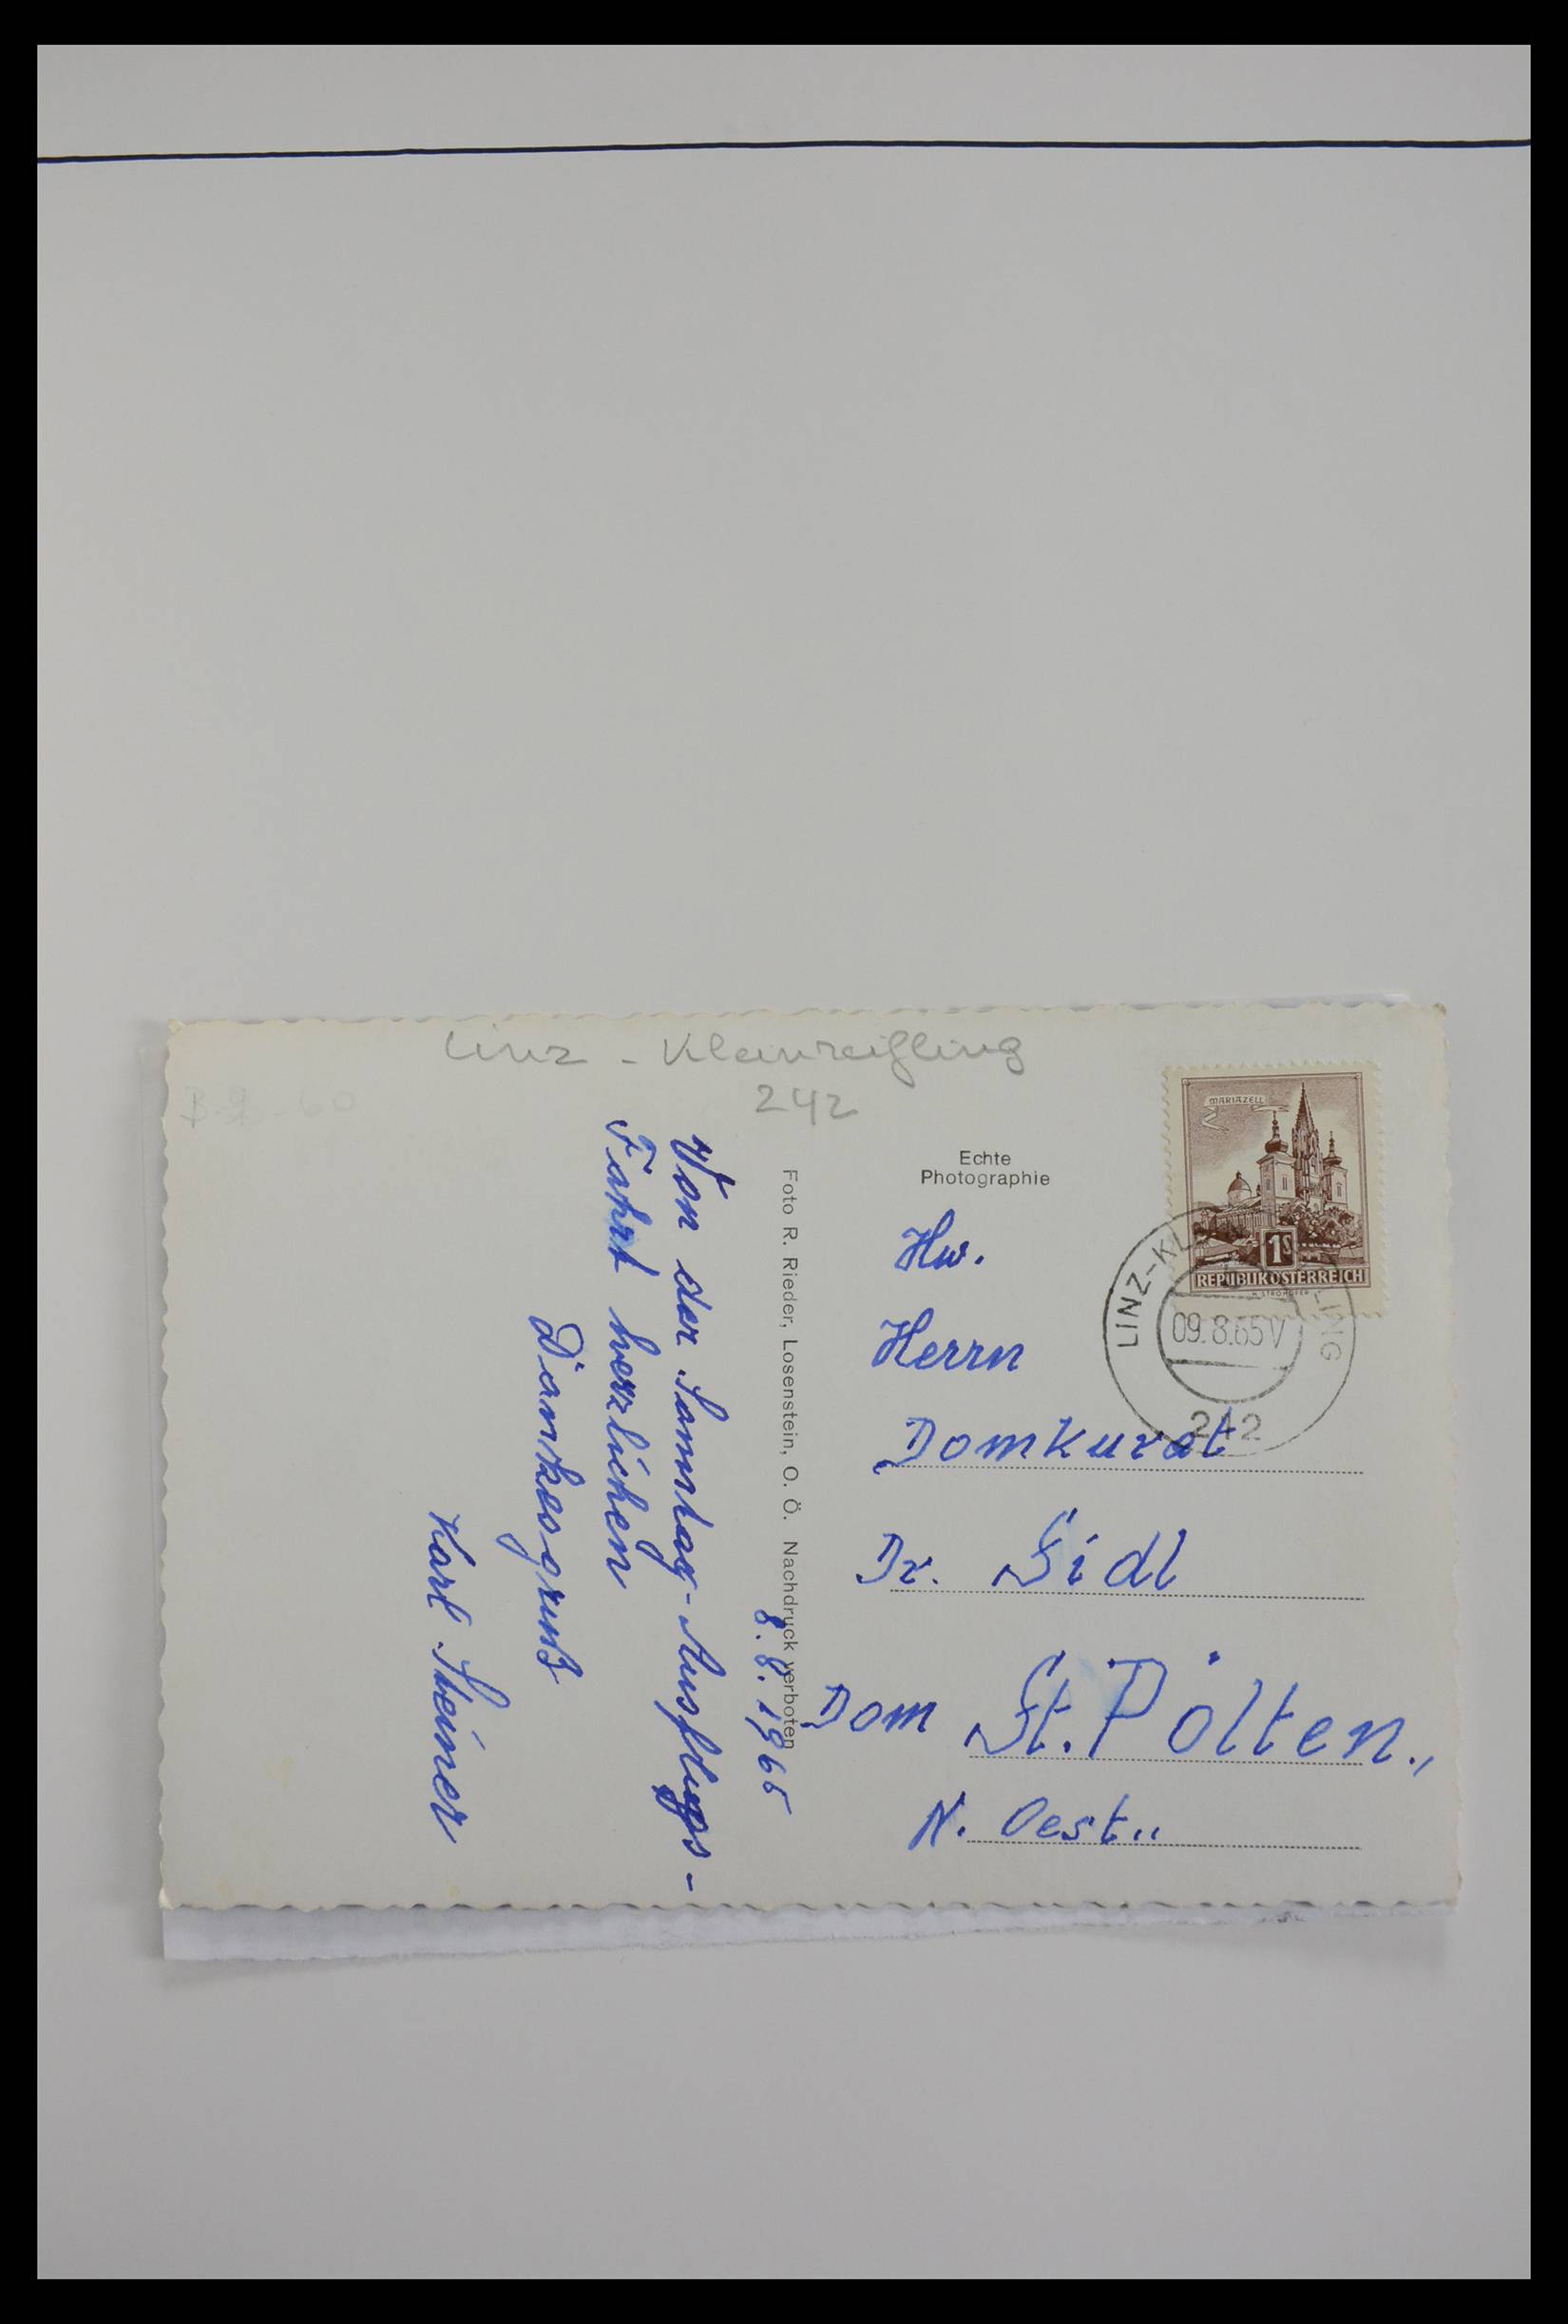 Linz - Kleinreifling
242
Echte
Photographie
MARIAZELL
1S
REPUBLIK ÖSTERREICH
LINZ-KL LING
09.8.65 V
242
Hw.
Herrn
Domkurat
Dr. Sidl
Dom St. Pölten.,
N. Oest..
Foto R. Rieder, Losenstein, O. Ö. Nachdruck verboten
8. 8. 1965
Von der Sonntag-Ausflugs-
Fahrt herzlichen
Dankesgruß
Karl Steiner